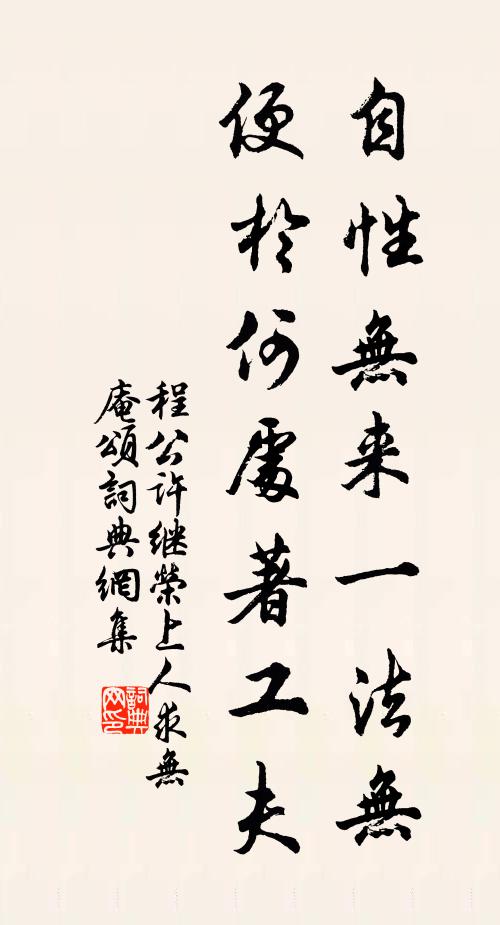 自性無来一法無
便於何處著工夫
程公许继榮上人求無
庵頌詞典網集
詞典网印